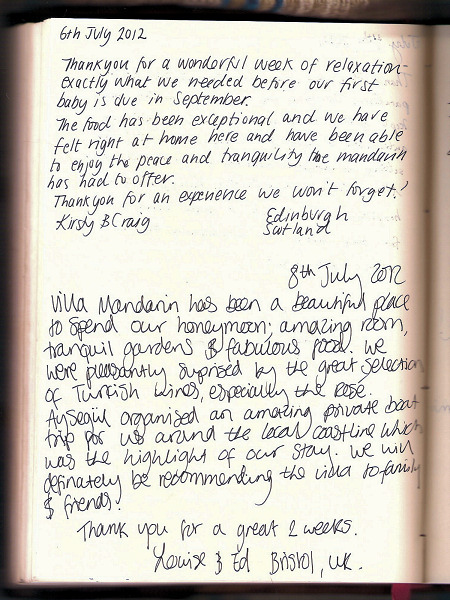 6th July 2012
Thankyou for a wonderful week of relaxation -
exactly what we needed before our first
baby is due in September.
The food has been exceptional and we have
felt right at home here and have been able
to enjoy the peace and tranquility the mandarin
has had to offer.
Thankyou for an experience we won't forget!
Kirsty & Craig Edinburgh
Scotland
8th July 2012
Villa Mandarin has been a beautiful place
to spend our honeymoon; amazing room,
tranquil gardens & fabulous food. We
were pleasantly suprised by the great selection
of Turkish wines, especially the rose.
Aysegul organised an amazing private boat
trip for us around the local coastline which
was the highlight of our stay. We will
definately be recommending the villa to family
& friends!
Thank you for a great 2 weeks.
Louise & Ed Bristol, UK.